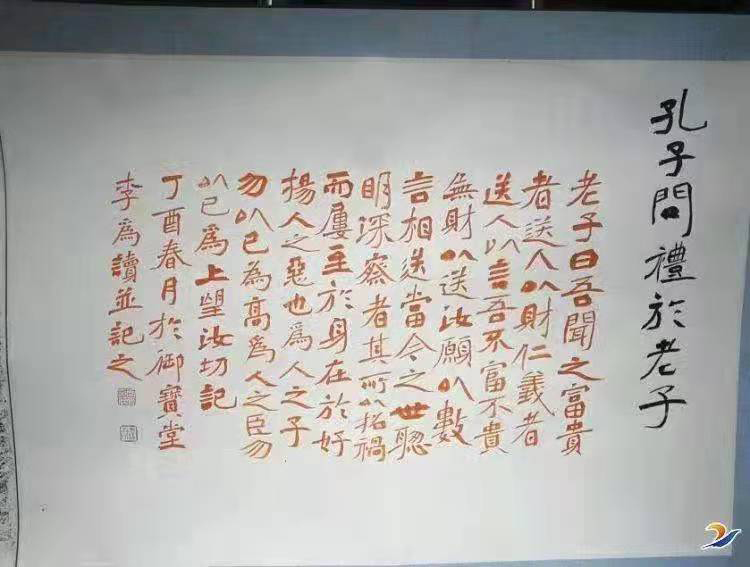 孔子問禮於老子
老子曰吾聞之富貴
者送人以財仁義者
送人以言吾不富不貴
無財以送汝願以數
言相送當今之世聰
明深察者其所以招禍
而屢至於身在於好
揚人之惡也爲人之子
勿以己為高爲人之臣勿
以己爲上望汝切記
丁酉春月於御寶堂
李爲讀並記之